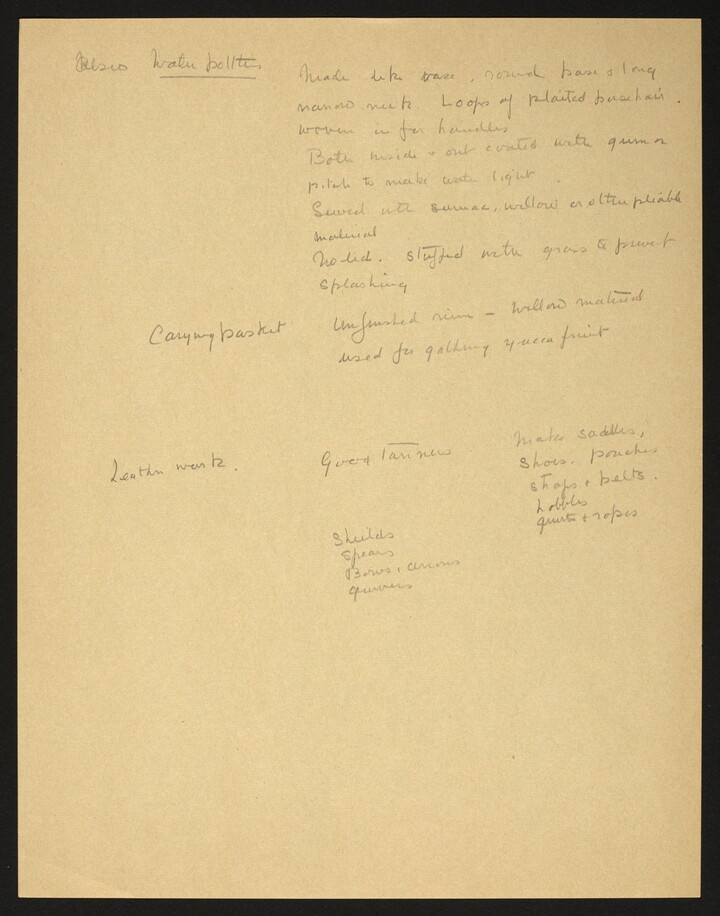 Water bottle.
Made like vase, round base & long
narrow neck. Loops of plaited horsehair.
woven in for handles
Both inside & out coated with gum or
pitch to make water tight.
Sewed with sumac, willow or other pliable
material
No lid. Stuffed with grass to prevent
splashing
Carrying basket
Unfinished rim - willow material
used for gathering yucca fruit
Leather work.
Good Tanners
Make saddles,
Shoes. pouches
straps & belts.
hobbles
quirts & ropes
Shields
Spears
Bows & arrows
quivers